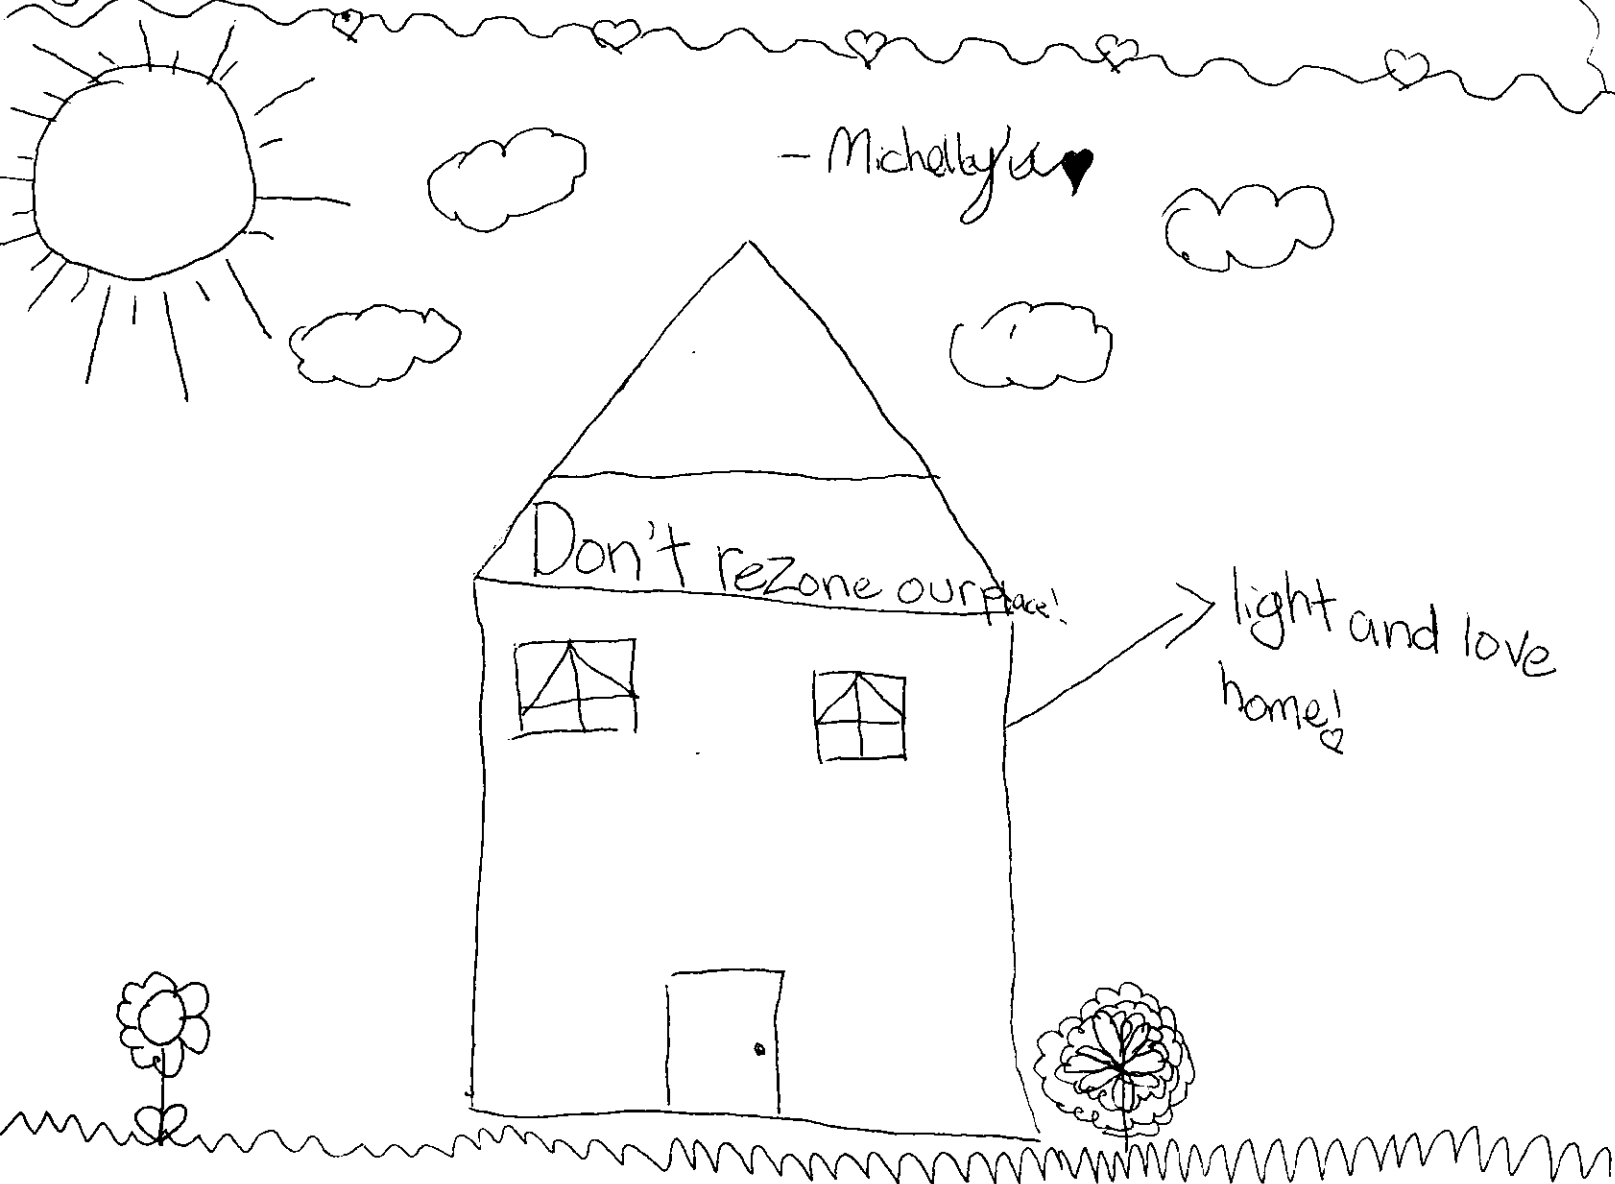 Don't rezone our place!
light and love
home!